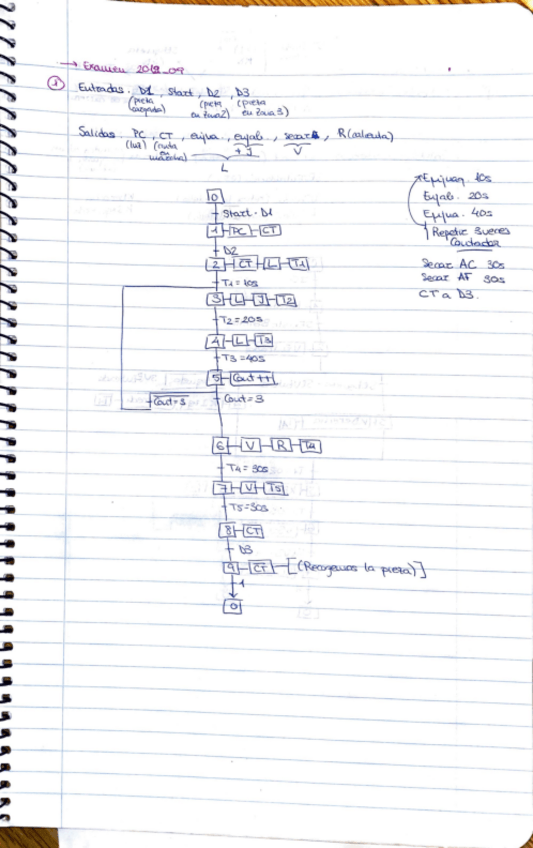 → Examen 2012_09
① Entradas. D1, Start, D2, D3
(pieza cargada) (pieza en zona2) (pieza en zona 3)
Salidas. PC, CT, enjua, enjab, secar, R(calienta)
(luz) (cinta en marcha) + J V
L
Enjuag. 10s
Enjab. 20s
Enjua. 40s
Repetir 3 veces
Contador
Secar AC 30s
Secar AF 30s
CT a D3.
0
Start · D1
1 PC CT
D2
2 C̅T̅ L T1
T1 = 10s
3 L J T2
T2 = 20s
4 L T3
T3 = 40s
5 Cout++
C̅o̅u̅t̅=̅3̅ Cout = 3
6 V R T4
T4 = 30s
7 V T5
T5 = 30s
8 CT
D3
9 C̅T̅ [(Recogemos la pieza)]
1
0